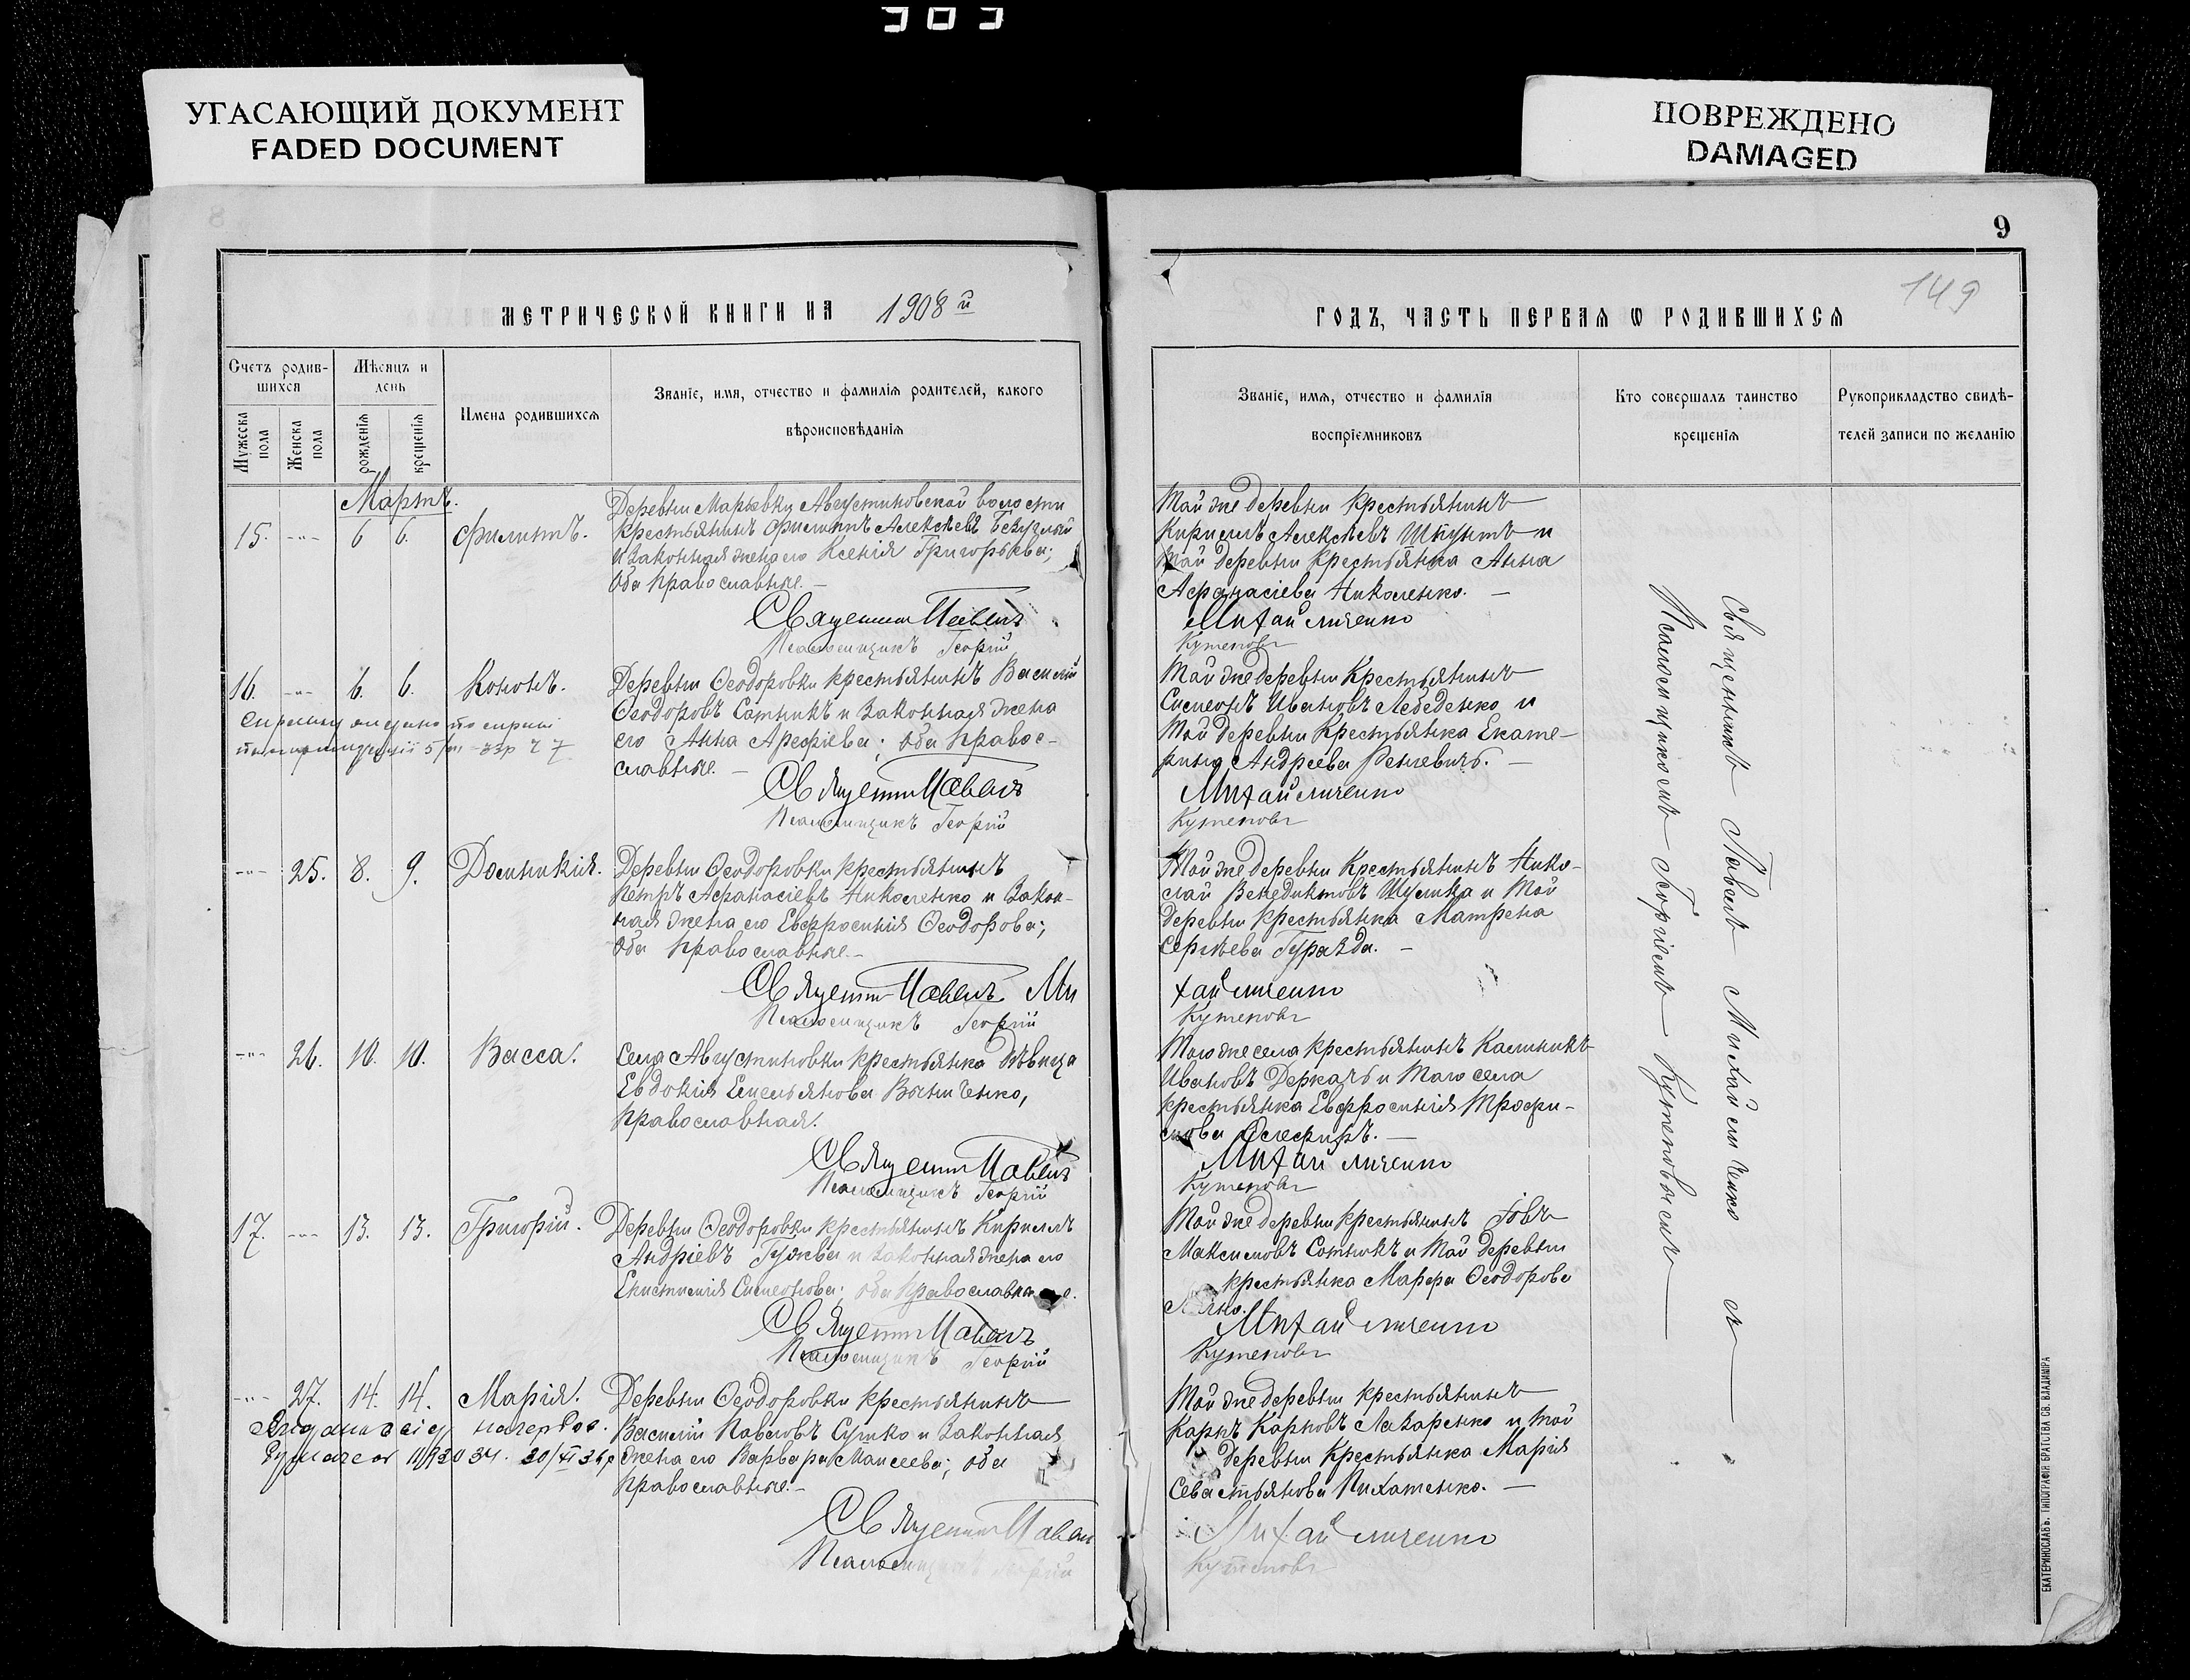 УГАСАЮЩИЙ ДОКУМЕНТ
FADED DOCUMENT
ПОВРЕЖДЕНО
DAMAGED
9
149
МЕТРИЧЕСКОЙ КНИГИ НА 1908 й
ГОДЪ, ЧАСТЬ ПЕРВАЯ Ѡ РОДИВШИХСЯ
Счетъ родив-
шихся
Мѣсяцъ и
день
Мужеска
пола
Женска
пола
рожденія
крещенія
Имена родившихся
Званіе, имя, отчество и фамилія родителей, какого
вѣроисповѣданія
Званіе, имя, отчество и фамилія
воспріемниковъ
Кто совершалъ таинство
крещенія
Рукоприкладство свидѣ-
телей записи по желанію
Мартъ.
15. 6 6. Филиппъ.
Деревни Марьевки Августиновской волости
крестьянинъ Филиппъ Алексѣевъ
и законная жена его Ксенія Григорьева;
оба православные.
Священник Павелъ
Псаломщикъ Георгій
Той же деревни крестьянинъ
Кириллъ Алексѣевъ Шкунтъ и
той деревни крестьянка Анна
Афанасіева Николенко.
Михайличенко
Кутеповъ
16. 6. 6. Кононъ.
Деревни Ѳеодоровки крестьянинъ Василій
Ѳеодоровъ Сотникъ и законная жена
его Анна Арефіева; оба право-
славные.
Священник Павелъ
Псаломщикъ Георгій
Той же деревни крестьянинъ
Симеонъ Ивановъ Лебеденко и
той деревни крестьянка Екате-
рина Андреева
Михайличенко
Кутеповъ
25. 8. 9. Домникія.
Деревни Ѳеодоровки крестьянинъ
Петръ Афанасіевъ Николенко и закон-
ная жена его Евфросинія Ѳеодорова;
оба православные.
Священник Павелъ Ми
Псаломщикъ Георгій
Той же деревни крестьянинъ Нико-
лай Венедиктовъ Шулика и той
деревни крестьянка Матрена
Сергѣева Гуразда.
хайличенко
Кутеповъ
26. 10. 10. Васса.
Села Августиновки крестьянка дѣвица
Евдокія Емельянова
православная.
Священник Павелъ
Псаломщикъ Георгій
Того же села крестьянинъ Калиникъ
Ивановъ Деркачъ и того села
крестьянка Евфросинія Трофи-
мова Олефиръ.
Михайличенко
Кутеповъ
17. 13. 13. Григорій.
Деревни Ѳеодоровки крестьянинъ Кириллъ
Андріевъ Гужва и законная жена его
Симеонова; оба православные.
Священник Павелъ
Псаломщикъ Георгій
Той же деревни крестьянинъ Іовъ
Максимовъ Сотникъ и той деревни
крестьянка Марфа Ѳеодорова
Михайличенко
Кутеповъ
27. 14. 14. Марія.
Деревни Ѳеодоровки крестьянинъ
Василій Павловъ Сушко и законная
жена его Варвара Моисеева; оба
православные.
Священник Павел
Псаломщикъ Георгій
Той же деревни крестьянинъ
Карпъ Карповъ Лазаренко и той
деревни крестьянка Марія
Севастьянова Пихатенко.
Михайличенко
Кутеповъ
Священникъ Павелъ Михайличенко съ
Псаломщикомъ Георгіемъ Кутеповымъ
ЕКАТЕРИНОСЛАВЪ. ТИПОГРАФІЯ БРАТСТВА СВ. ВЛАДИМІРА